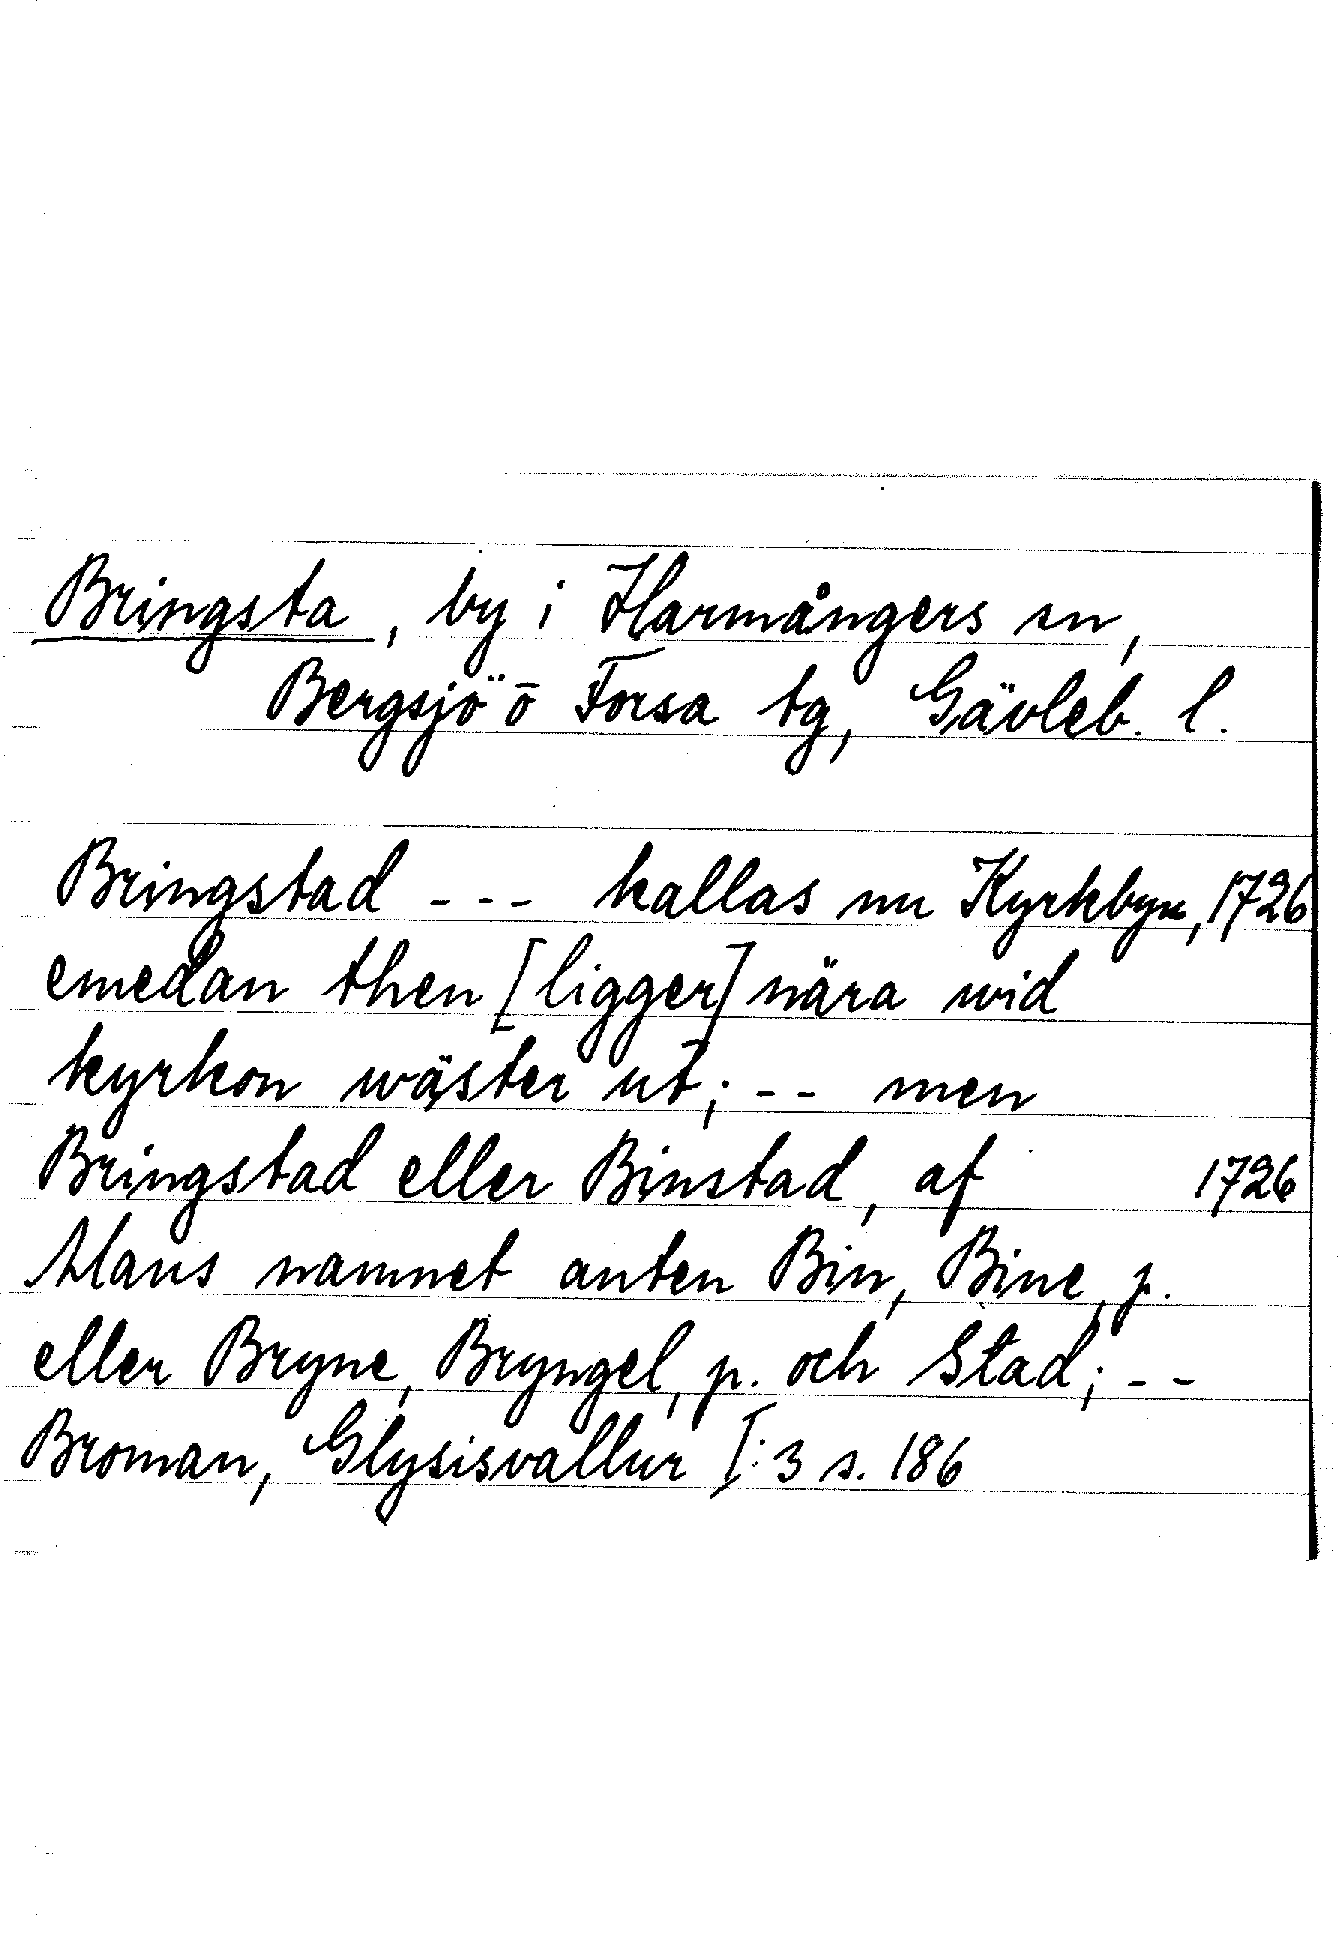 Bringsta, by i Harmångers sn,
Bergsjö ō Forsa tg, Gävleb. l.
Bringstad --- kallas nu Kyrkbyn, 1726
emedan then [ligger] nära wid
kyrkon wäster ut; -- men
Bringstad eller Binstad, af 1726
Mans namnet anten Bin, Bine, p.
eller Bryne, Bryngel, p. och Stad; --
Broman, Glysisvallur I:3 s. 186